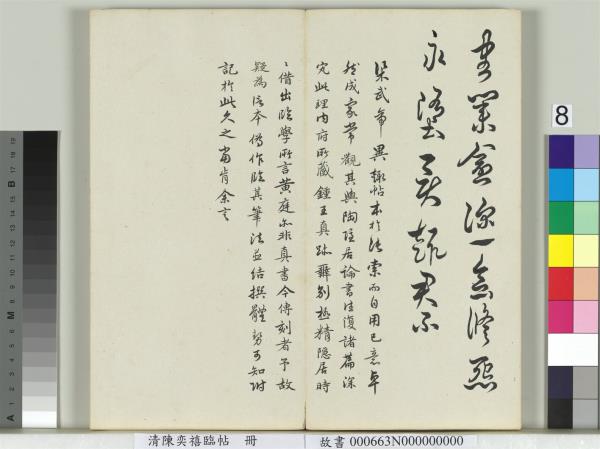 愛業愈深一念修怨
永墮異趣君不
梁武帝異趣帖本於法索而自用己意卓
然成家嘗觀其與陶隱居論書往復諸篇深
究此理內府所藏鍾王真跡辨別極精隱居時
〻借出臨學所言黃庭亦非真書今傳刻者予故
疑為俗本偽作臨其筆法並結撰體勢可知附
記於此久之當肯余言
8
清陳奕禧臨帖 冊
故書 000663N000000000